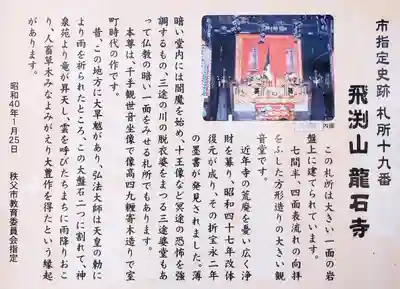 市指定史跡 札所十九番
飛渕山 龍石寺
この札所は大きい一面の岩
盤上に建てられています。
七間半、四面表流れの向拝
をふした方形造りの大きい観
音堂です。
近年寺の荒廃を憂い広く浄
財を募り、昭和四十七年改体
復元が成り、その折宝永二年
の墨書が発見されました。薄
内陣
暗い堂内には閻魔を始め、十王像など冥途の恐怖を強
調するもの、三途の川の脱衣婆をまつる三途婆堂もあ
って仏教の暗い一面をみせる札所でもあります。
本尊は、千手観世音坐像で像高四九糎寄木造りで室
町時代の作です。
昔、この地方に大旱魃があり、弘法大師は天皇の勅に
より雨を祈られたところ、この大盤石二つに割れて、神
泉苑より竜が昇天し、雲を呼びたちまちに雨降りおこ
り、人畜草木みなよみがえり大豊作を得たという縁起
があります。
昭和40年1月25日
秩父市教育委員会指定